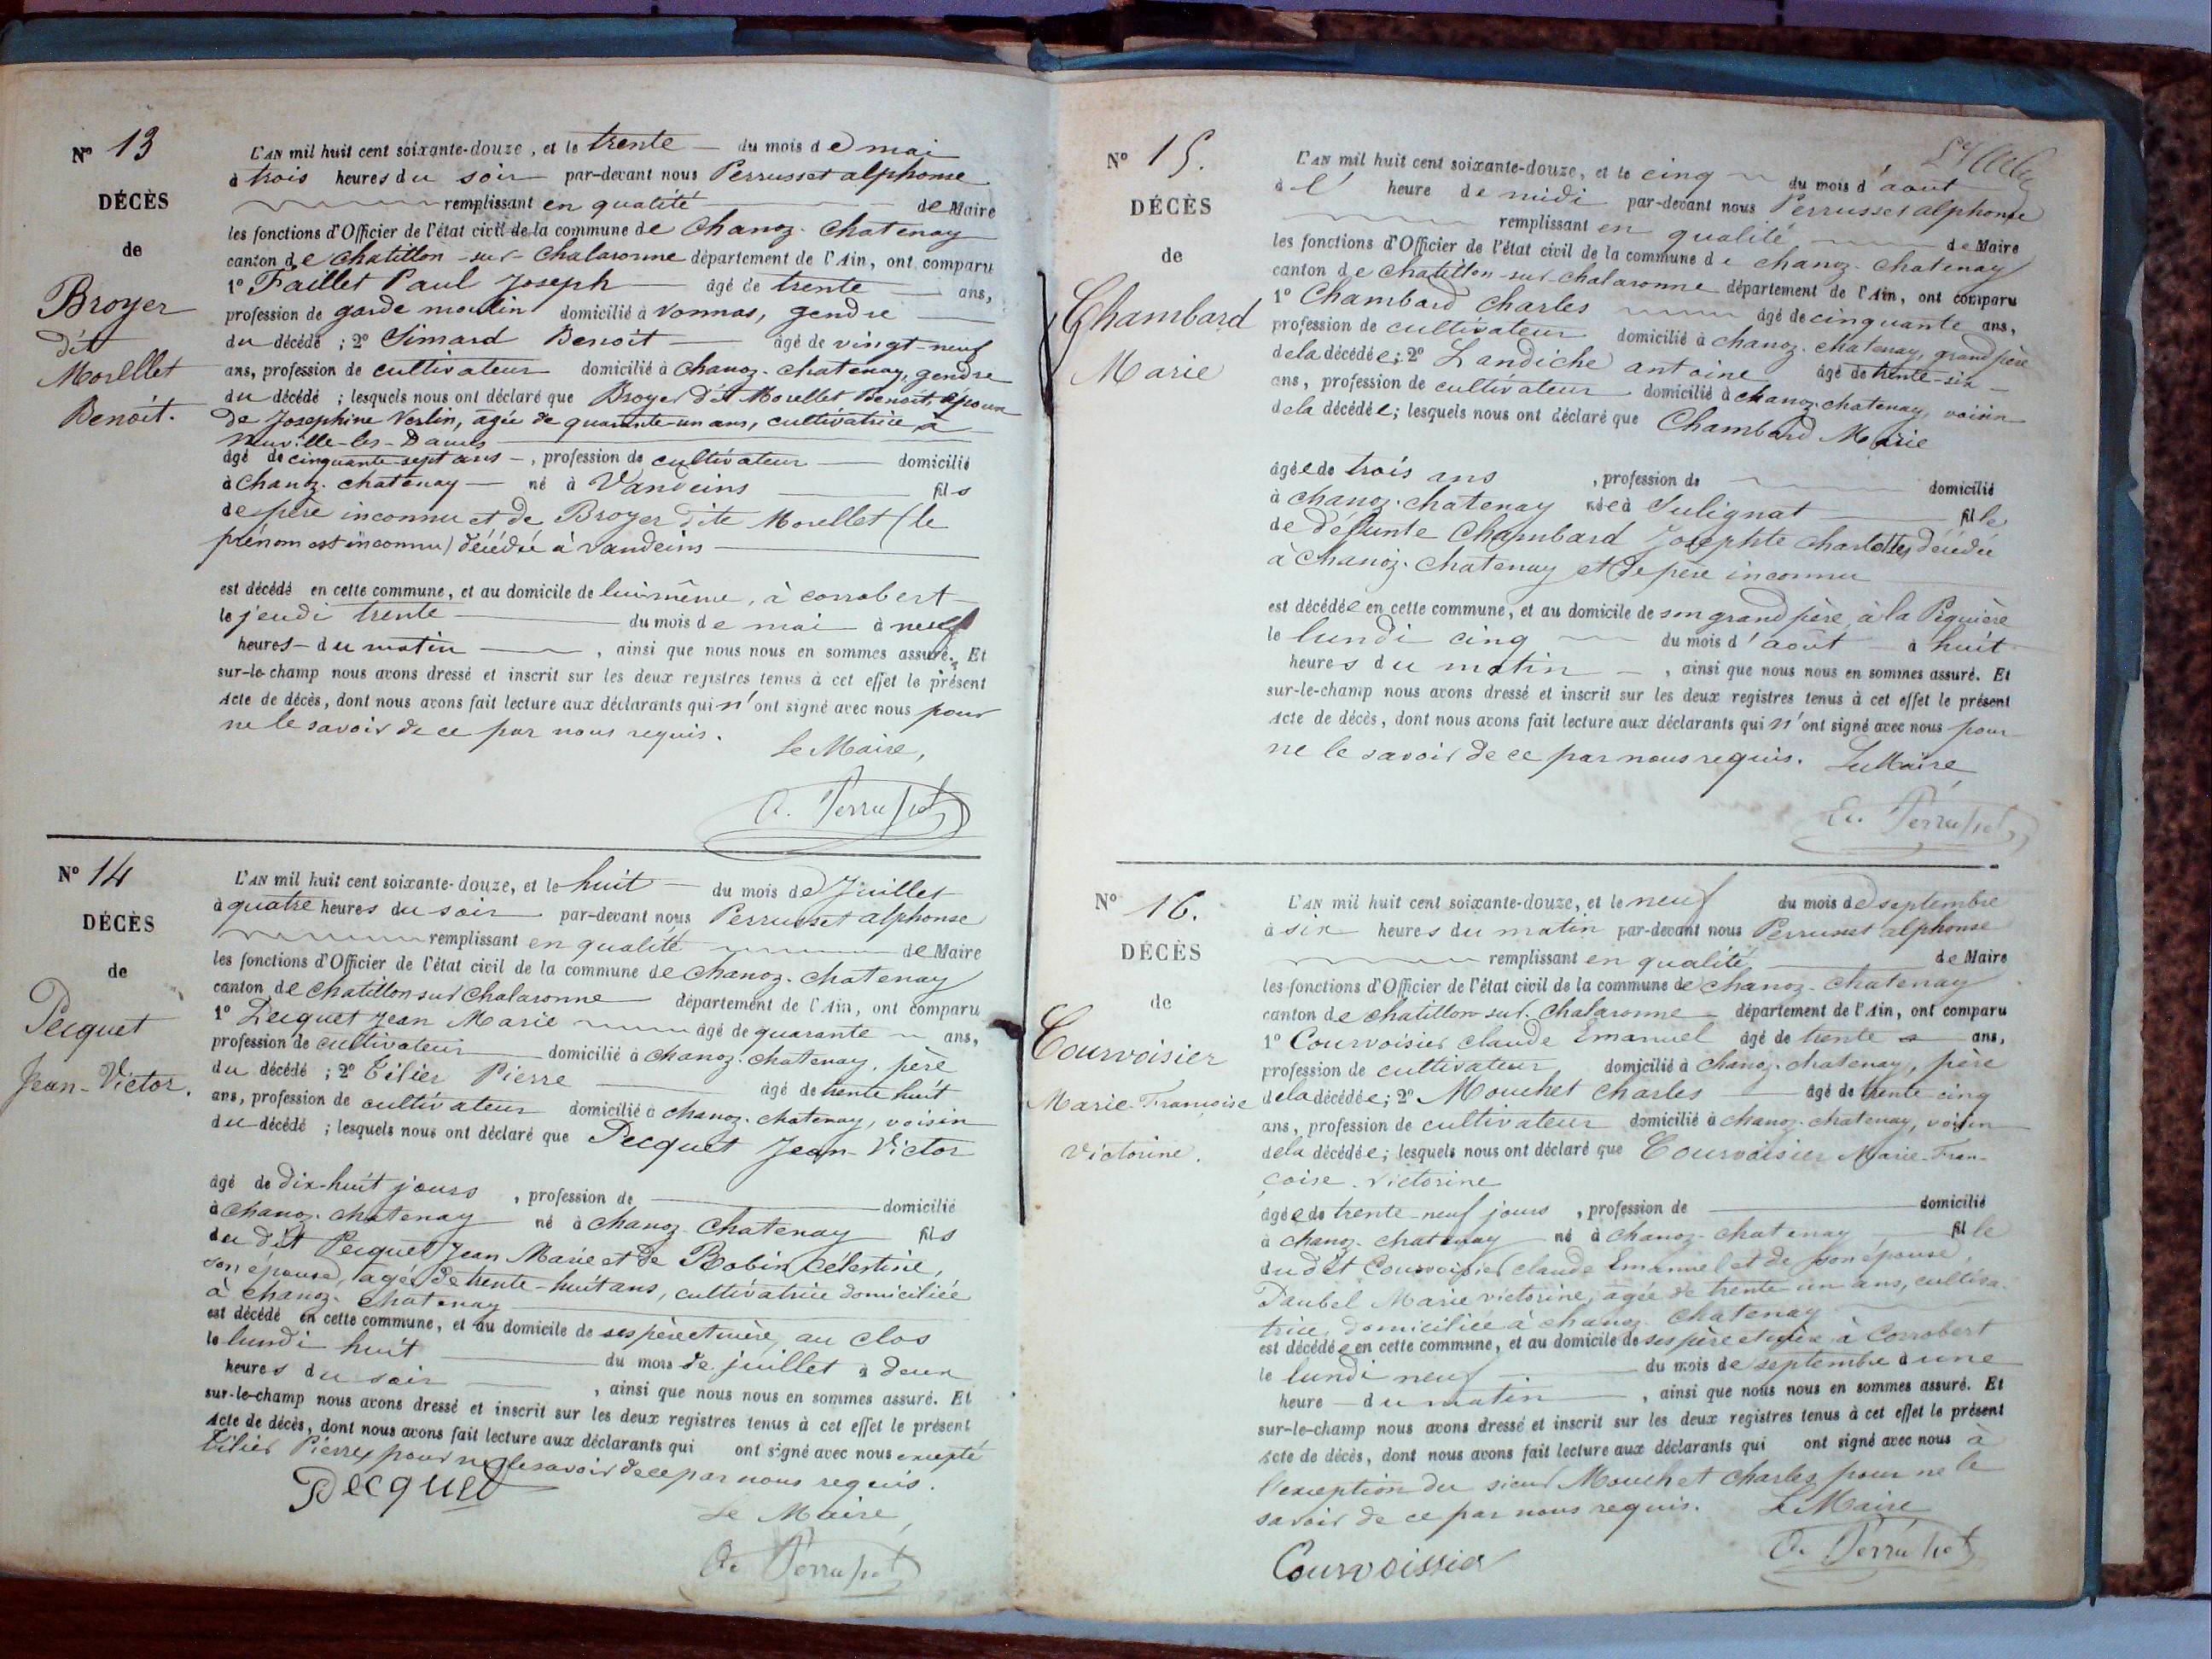 N° 13
DÉCÈS
de
Broyer
dit
Morellet
Benoit.
L'AN mil huit cent soixante-douze, et le trente du mois de mai
à trois heures du soir par-devant nous Perrusset alphonse
remplissant en qualité de Maire
les fonctions d'Officier de l'état civil de la commune de Chanoz-Chatenay
canton de chatillon-sur-Chalaronne département de l'Ain, ont comparu
1° Faillet Paul Joseph âgé de trente ans,
profession de garde moulin domicilié à Vonnas, gendre
du décédé ; 2° Simard Benoit âgé de vingt-neuf
ans, profession de cultivateur domicilié à Chanoz-chatenay, gendre
du décédé ; lesquels nous ont déclaré que Broyer dit Morellet Benoit époux
de Josephine Verlin, agée de quarante-un ans, cultivatrice à
Neuville-les-Dames
âgé de cinquante-sept ans, profession de cultivateur domicilié
à Chanoz-chatenay né à Vandeins fils
de père inconnu et de Broyer dite Morellet (le
prénom est inconnu) décédée à Vandeins
est décédé en cette commune, et au domicile de lui-même, à corrobert
le jeudi trente du mois de mai à neuf
heures du matin, ainsi que nous nous en sommes assuré. Et
sur-le-champ nous avons dressé et inscrit sur les deux registres tenus à cet effet le présent
Acte de décès, dont nous avons fait lecture aux déclarants qui n'ont signé avec nous pour
ne le savoir de ce par nous requis.
Le Maire,
A. Perrusset
N° 14
DÉCÈS
de
Pecquet
Jean-Victor.
L'AN mil huit cent soixante-douze, et le huit du mois de Juillet
à quatre heures du soir par-devant nous Perrusset alphonse
remplissant en qualité de Maire
les fonctions d'Officier de l'état civil de la commune de Chanoz-chatenay
canton de chatillon sur Chalaronne département de l'Ain, ont comparu
1° Pecquet Jean Marie âgé de quarante ans,
profession de cultivateur domicilié à chanoz-chatenay, père
du décédé ; 2° Tilier Pierre âgé de trente huit
ans, profession de cultivateur domicilié à chanoz-chatenay, voisin
du décédé ; lesquels nous ont déclaré que Pecquet Jean-Victor
âgé de dix-huit jours, profession de domicilié
à chanoz-chatenay né à chanoz-Chatenay fils
du dit Pecquet Jean Marie et de Robin Célestine,
son épouse, agée de trente-huit ans, cultivatrice domiciliée
à chanoz-chatenay
est décédé en cette commune, et au domicile de ses père et mère, au clos
le lundi huit du mois de juillet à deux
heures du soir, ainsi que nous nous en sommes assuré. Et
sur-le-champ nous avons dressé et inscrit sur les deux registres tenus à cet effet le présent
Acte de décès, dont nous avons fait lecture aux déclarants qui ont signé avec nous excepté
Tilier Pierre pour ne le savoir de ce par nous requis.
Pecquet
Le Maire,
A. Perrusset
N° 15.
DÉCÈS
de
Chambard
Marie
L'AN mil huit cent soixante-douze, et le cinq du mois d'aout
à l' heure de midi par-devant nous Perrusset alphonse
remplissant en qualité de Maire
les fonctions d'Officier de l'état civil de la commune de chanoz-chatenay
canton de chatillon-sur-chalaronne département de l'Ain, ont comparu
1° Chambard Charles âgé de cinquante ans,
profession de cultivateur domicilié à chanoz-chatenay, grand père
de la décédée ; 2° Landiche antoine âgé de trente-six
ans, profession de cultivateur domicilié à chanoz-chatenay, voisin
de la décédée ; lesquels nous ont déclaré que Chambard Marie
âgée de trois ans, profession de domicilié
à chanoz-chatenay née à Sulignat fille
de défunte Chambard Josephte Charlotte, décédée
à Chanoz-Chatenay et de père inconnu
est décédée en cette commune, et au domicile de son grand père, à la Péguière
le lundi cinq du mois d'août à huit
heures du matin, ainsi que nous nous en sommes assuré. Et
sur-le-champ nous avons dressé et inscrit sur les deux registres tenus à cet effet le présent
Acte de décès, dont nous avons fait lecture aux déclarants qui n'ont signé avec nous pour
ne le savoir de ce par nous requis. Le Maire
A. Perrusset
N° 16.
DÉCÈS
de
Courvoisier
Marie-Françoise
Victorine.
L'AN mil huit cent soixante-douze, et le neuf du mois de septembre
à six heures du matin par-devant nous Perrusset alphonse
remplissant en qualité de Maire
les fonctions d'Officier de l'état civil de la commune de chanoz-chatenay
canton de chatillon-sur-Chalaronne département de l'Ain, ont comparu
1° Courvoisier claude Emanuel âgé de trente ans,
profession de cultivateur domicilié à chanoz-chatenay, père
de la décédée ; 2° Mouchet Charles âgé de trente cinq
ans, profession de cultivateur domicilié à chanoz-chatenay, voisin
de la décédée ; lesquels nous ont déclaré que Courvoisier Marie-Fran-
çoise-Victorine
âgée de trente-neuf jours, profession de domicilié
à chanoz-chatenay né à chanoz-chatenay fille
du dit Courvoisier claude Emanuel et de son épouse,
Daubel Marie victorine, agée de trente un ans, cultiva-
trice, domiciliée à chanoz-Chatenay
est décédée en cette commune, et au domicile de ses père et mère à Corrobert
le lundi neuf du mois de septembre à une
heure du matin, ainsi que nous nous en sommes assuré. Et
sur-le-champ nous avons dressé et inscrit sur les deux registres tenus à cet effet le présent
Acte de décès, dont nous avons fait lecture aux déclarants qui ont signé avec nous à
l'exception du sieur Mouchet Charles pour ne le
savoir de ce par nous requis. Le Maire
Courvoissier
A. Perrusset